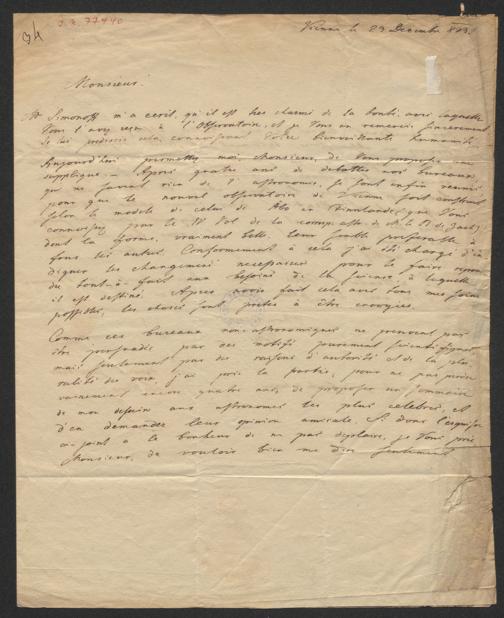 J. N. 77440
34
Vienne le 23 Decembre 823.
Monsieur.
Mr Simonoff m'a ecrit, qu'il est tres charmé de la bonté, avec laquelle
Vous l'avez reçu à l'Observatoire, et je Vous en remercie sincerement
Je lui predisois cela, connoissant Votre bienveillante humanité.
Aujourd'hui permettez moi, Monsieur, de Vous proposer une
supplique. — Apres quatre ans de debattes nos bureaux,
qui ne savent rien de l'astronomie, se sont enfin reunis
pour que le nouvel observatoire de Vienne soit construit
selon le modele de celui de Abo en Finnlande, que Vous
connoissez par le Vol de la corresp. astr. de Mr le B. de Zach,
dont la forme, vraiment belle, leur parut preferable à
tous les autres. Conformement à cela j'ai été chargé d'in
diquer les changements necessaires pour le faire repon
du tout-à-fait aux besoins de la science à laquelle
il est destiné. Apres avoir fait cela avec tous mes forces
possibles, les choses sont pretes à être
Comme ces bureaux non-astronomiques ne prennent pas
être persuadés par des motifs purement scientifiques
mais seulement par des raisons d'autorité et de la plu
ralité des voix, j'ai pris le parti, pour ne pas perdre
vainement encore quatre ans, de proposer un sommaire
de mon dessein aux astronomes les plus celebres, et
d'en demander leur opinion amicale. Si donc l'esquisse
ci-joint a le bonheur de ne pas deplaire, je Vous prie
Monsieur, de vouloir bien me dire seulement